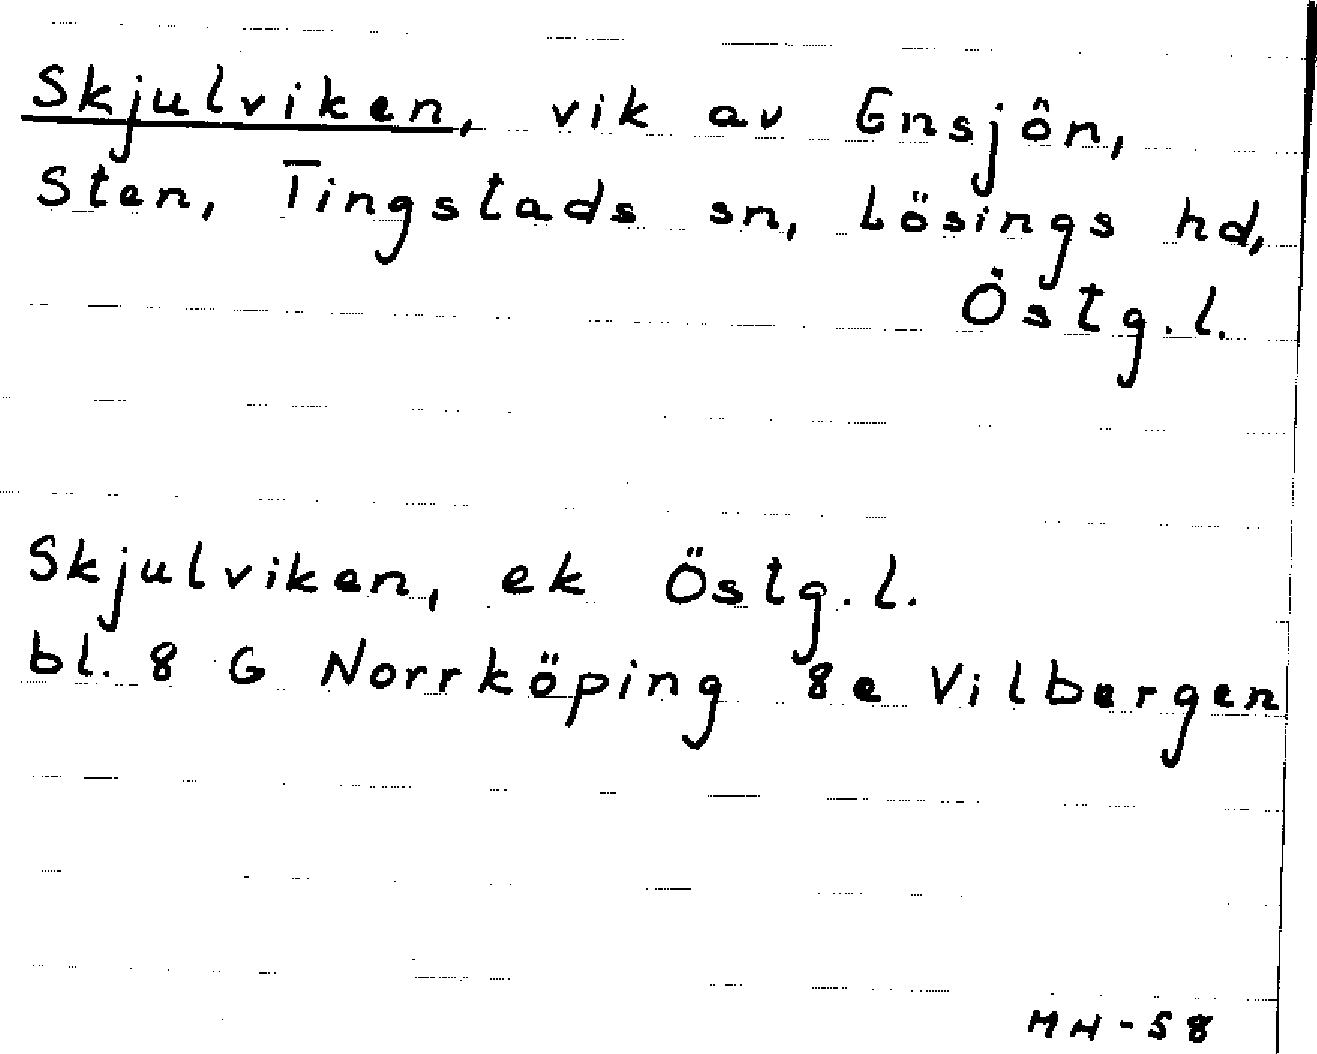 Skjulviken, vik av Ensjön,
Sten, Tingstads sn, Lösings hd,
Östg.l.
Skjulviken, ek Östg.l.
bl. 8 G Norrköping 8e Vilbergen
MH-58